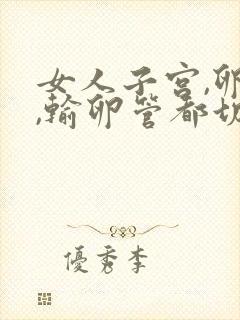 女人子宫,卵
,輸卵管都切
優秀李